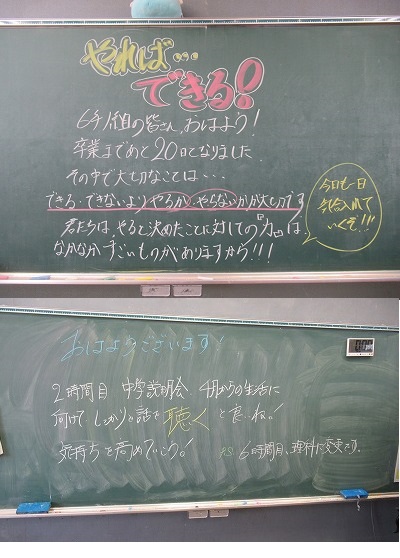 やれば…
できる!
6年1組の皆さん、おはよう!
卒業まであと20日となりました
その中で大切なことは…
できる・できないよりやるか、やらないかが大切です
君たちは、やると決めたことに対しての『力』は
なかなかすごいものがありますから!!!
今日も一日
気合入れて
いくぞ!!!
おはようございます!
2時間目 中学説明会 4月からの生活に
向けてしっかりと話を聴くと良いね!
気持ちを高めていこう!
P.S 6時間目、理科に変更です。